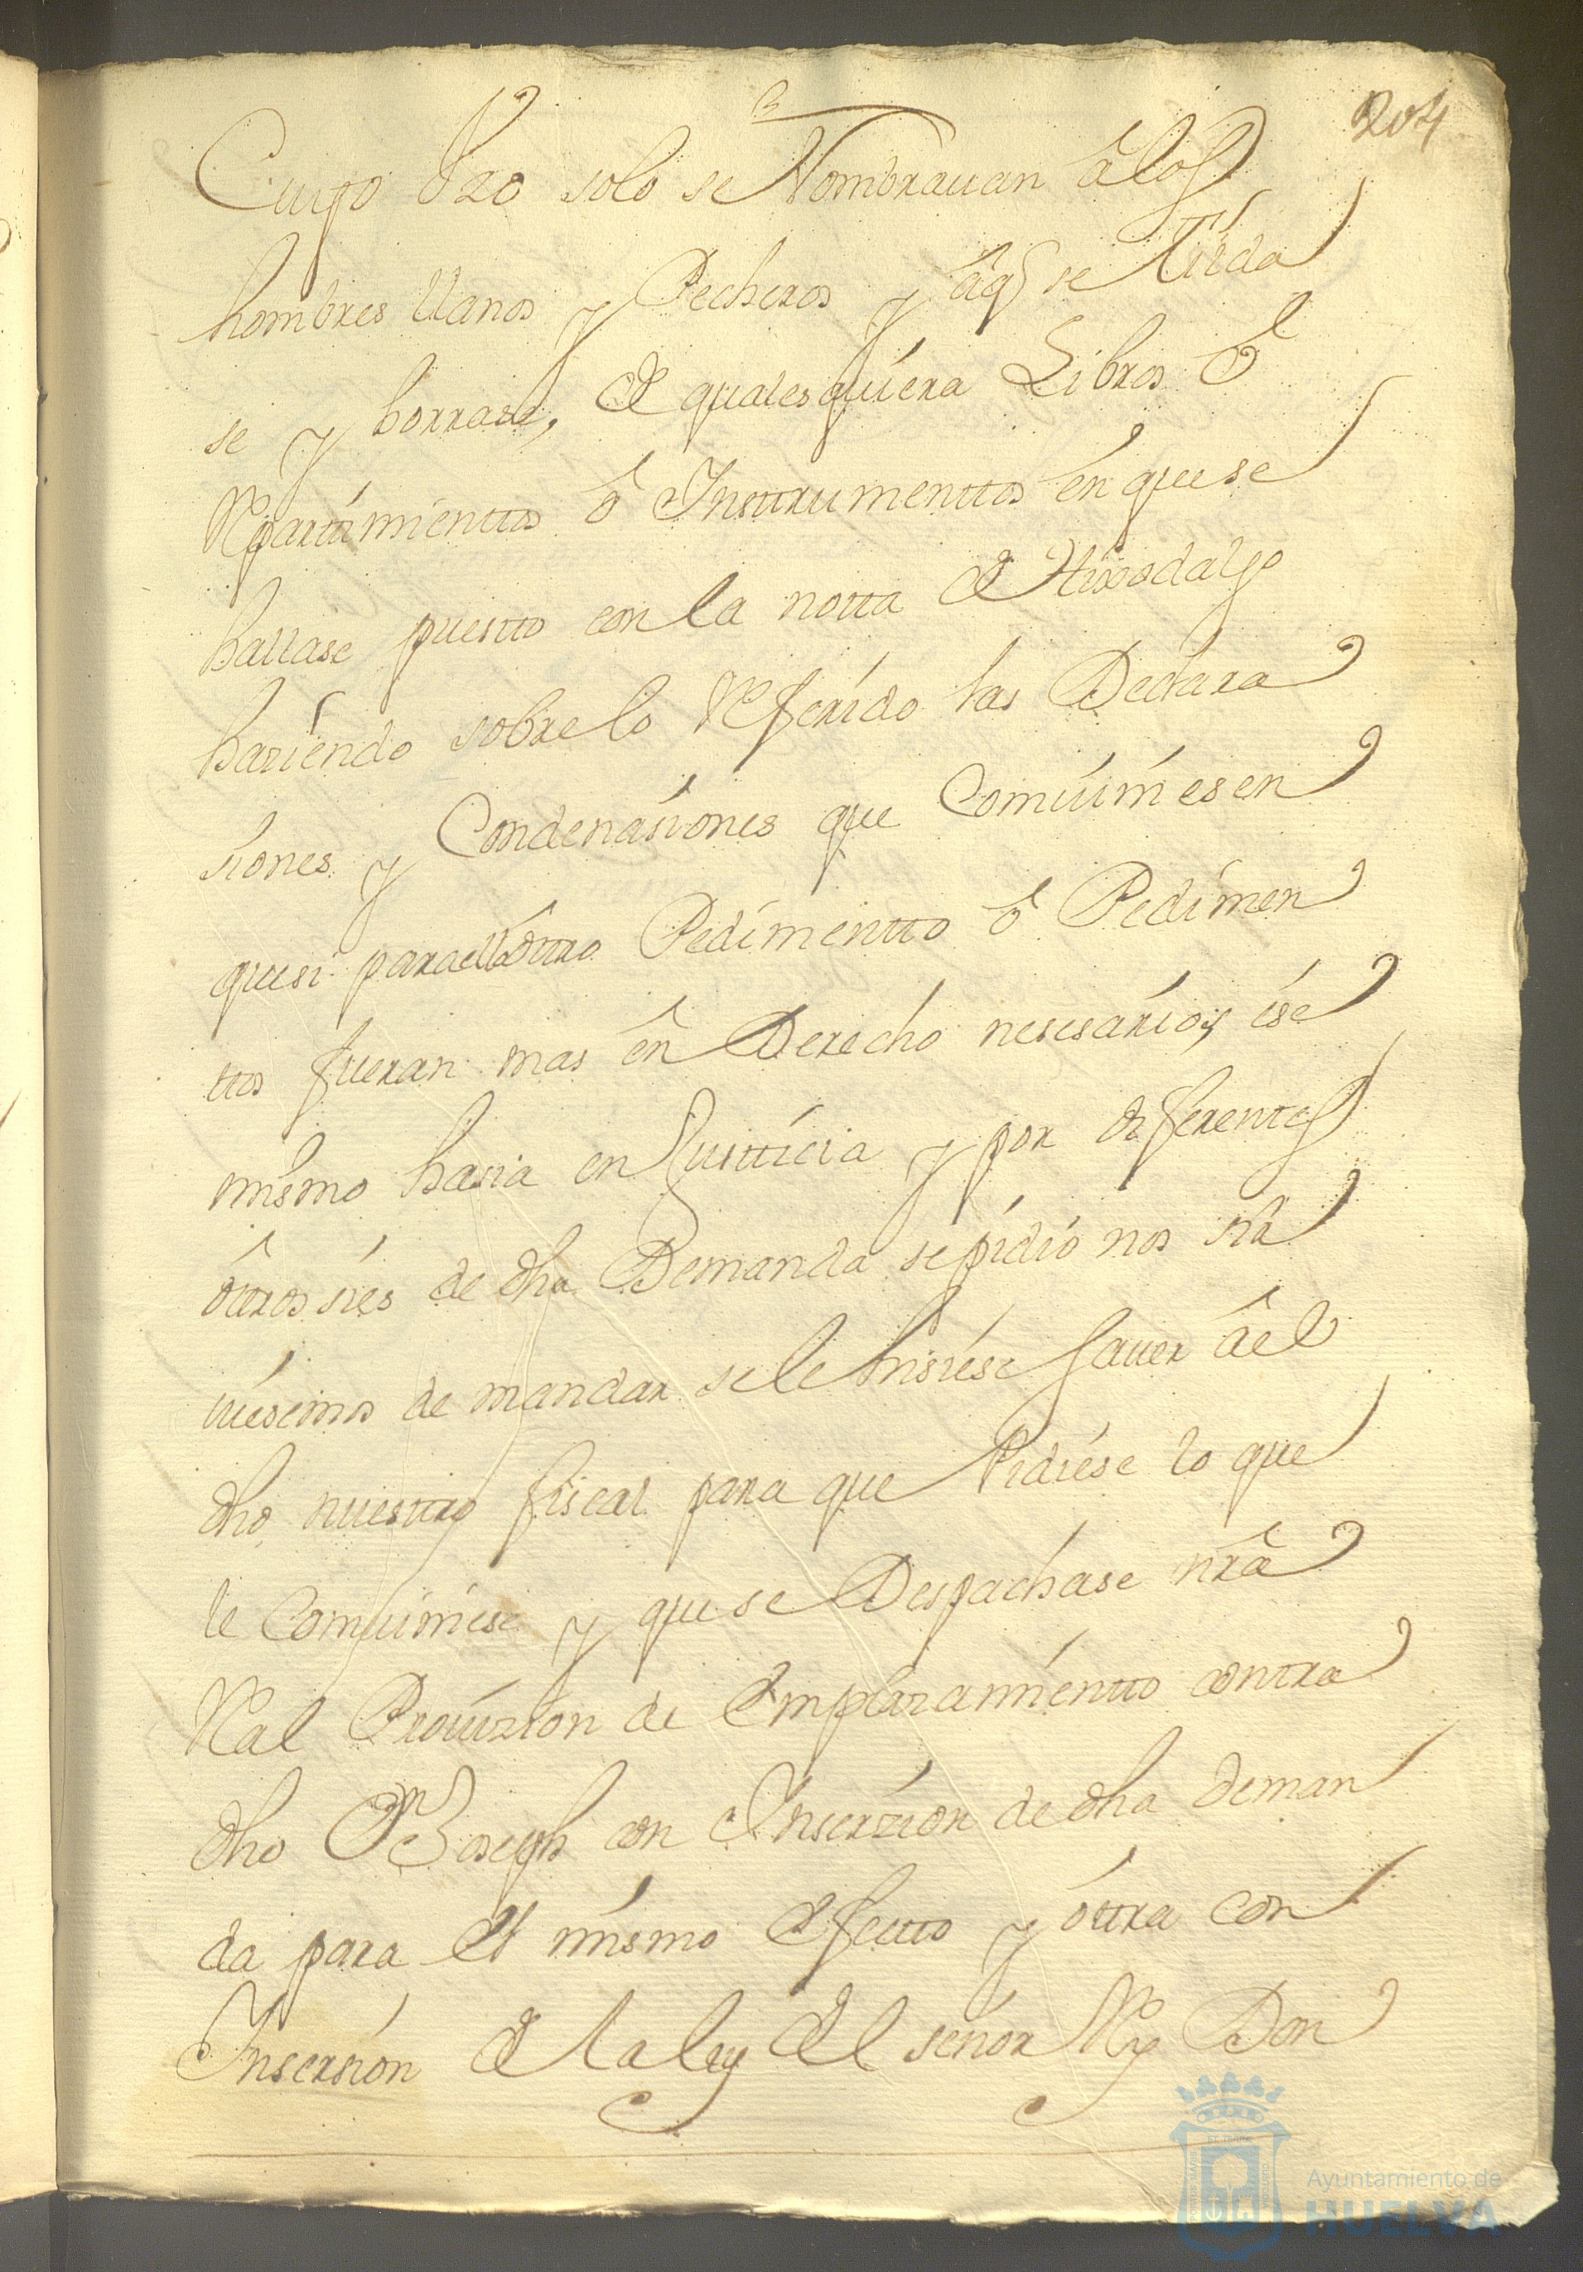 204
Cuyo Uzo solo se Nombrauan â los
hombres llanos y Pecheros y âq̃ se tilda
se y borrase, de qualesquiera Libros ô
Repartimienttos ô Insttrumenttos en que se
hallase puestto con la notta de Hixodalgo
haziendo sobre lo Referido las Declara
siones y Condenasiones que Combiniesen
que si para ello ôttro Pedimentto ô Pedimen
ttos fueran mas en Derecho nesesarios, ese
mismo hasia en Justticia y por diferentes
ôttros sies de dha Demanda se pidio nos sir
uiesemos de mandar se le hisiese sauer âel
dho nuesttro fiscal para que Pidiese lo que
le Combiniese y que se Despachase nrâ
Real Prouizion de Emplazamientto contra
dho Dn Joseph con Inserzion de dha deman
da para el mismo efectto y ôttra con
Insersion de la ley del señor Rey Don
Ayuntamiento de
HUELVA